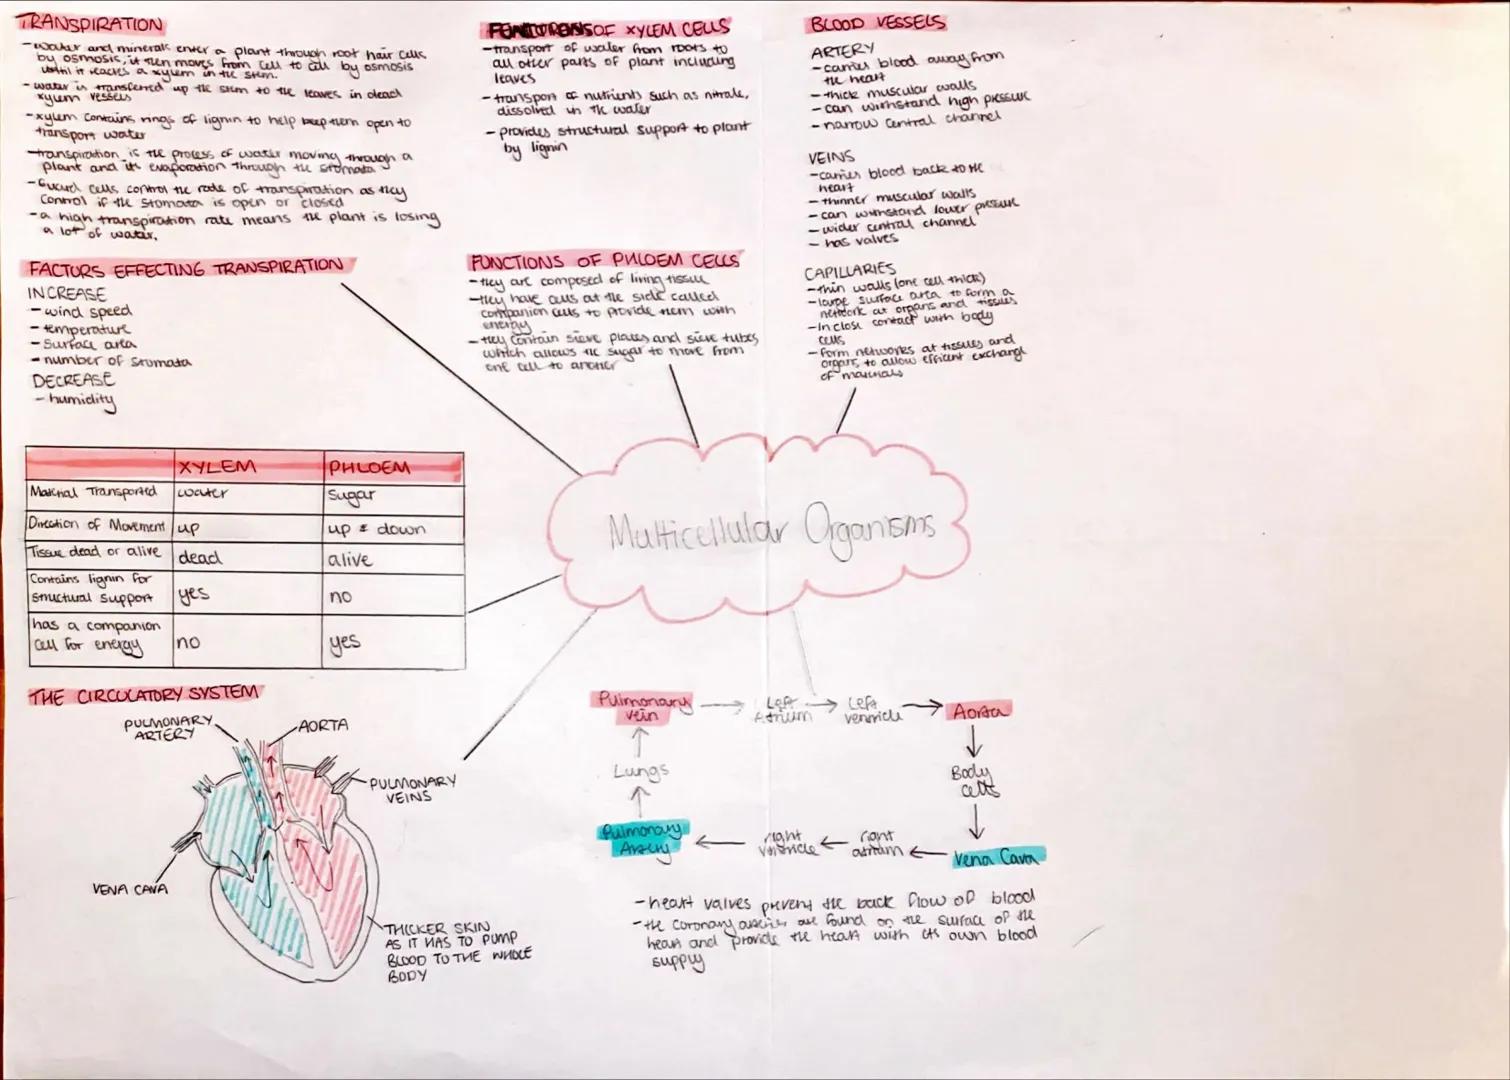 TRANSPIRATION
- water and minerals enter a plant through root hair cells
by osmosis, it then moves from cell to cell by osmosis
until it reaches a xylem in the stem.
- water is transferred up the stem to the leaves in dead
xylem vessels
- xylem contains rings of lignin to help keep them open to
transport water
- transpiration is the process of water moving through a
plant and its evaporation through the stomata
- Guard cells control the rate of transpiration as they
control if the stomata is open or closed
- a high transpiration rate means the plant is losing
a lot of water.
FACTORS EFFECTING TRANSPIRATION
INCREASE
- wind speed
- temperature
- surface area
- number of stomata
DECREASE
- humidity
XYLEM PHLOEM
Material Transported water sugar
Direction of Movement up up & down
Tissue dead or alive dead alive
Contains lignin for
structural support yes no
has a companion
cell for energy no yes
THE CIRCULATORY SYSTEM
PULMONARY
ARTERY
AORTA
PULMONARY
VEINS
VENA CAVA
THICKER SKIN
AS IT HAS TO PUMP
BLOOD TO THE WHOLE
BODY
OF XYLEM CELLS
- transport of water from roots to
all other parts of plant including
leaves
- transport of nutrients such as nitrate,
dissolved in the water
- provides structural support to plant
by lignin
FUNCTIONS OF PHLOEM CELLS
- they are composed of living tissue
- they have cells at the side called
companion cells to provide them with
energy
- they contain sieve plates and sieve tubes,
which allows the sugar to move from
one cell to another
BLOOD VESSELS
ARTERY
- carries blood away from
the heart
- thick muscular walls
- can withstand high pressure
- narrow central channel
VEINS
- carries blood back to the
heart
- thinner muscular walls
- can withstand lower pressure
- wider central channel
- has valves
CAPILLARIES
- thin walls (one cell thick)
- large surface area to form a
network at organs and tissues
- In close contact with body
cells
- form networks at tissues and
organs, to allow efficient exchange
of materials
Multicellular Organisms
Pulmonary
vein
Left
Atrium
Left
ventricle
Aorta
Lungs
Body
cells
Pulmonary
Artery
right
ventricle
right
atrium
Vena Cava
- heart valves prevent the back flow of blood
- the coronary arteries are found on the surface of the
heart and provide the heart with its own blood
supply